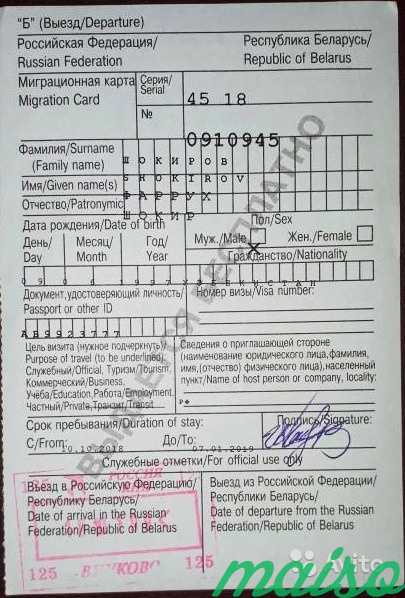 "Б" (Выезд/Departure)
Российская Федерация/
Russian Federation
Республика Беларусь/
Republic of Belarus
Миграционная карта
Migration Card
Серия/
Serial
45 18
№
0910945
Фамилия/Surname
(Family name)
ШОКИРОВ
SHOKIROV
Имя/Given name(s)
Отчество/Patronymic
ФАРРУХ
ШОКИР
Дата рождения/Date of birth
День/
Day
Месяц/
Month
Год/
Year
Пол/Sex
Муж./Male
Жен./Female
Гражданство/Nationality
УЗБЕКИСТАН
Документ, удостоверяющий личность/
Passport or other ID
Номер визы/Visa number:
AB9923777
Цель визита (нужное подчеркнуть)/
Purpose of travel (to be underlined):
Служебный/Official, Туризм/Tourism,
Коммерческий/Business,
Учёба/Education, Работа/Employment,
Частный/Private, Транзит/Transit
Сведения о приглашающей стороне
(наименование юридического лица, фамилия,
имя, (отчество) физического лица), населенный
пункт/Name of host person or company, locality:
Срок пребывания/Duration of stay:
С/From:
10.10.2018
До/To:
07.01.2019
Подпись/Signature:
Служебные отметки/For official use only
Въезд в Российскую Федерацию/
Республику Беларусь/
Date of arrival in the Russian
Federation/Republic of Belarus
Выезд из Российской Федерации/
Республики Беларусь/
Date of departure from the Russian
Federation/Republic of Belarus
ВЫДАЕТСЯ БЕСПЛАТНО
РОССИЯ
125 ВНУКОВО 125
Avito
maiso